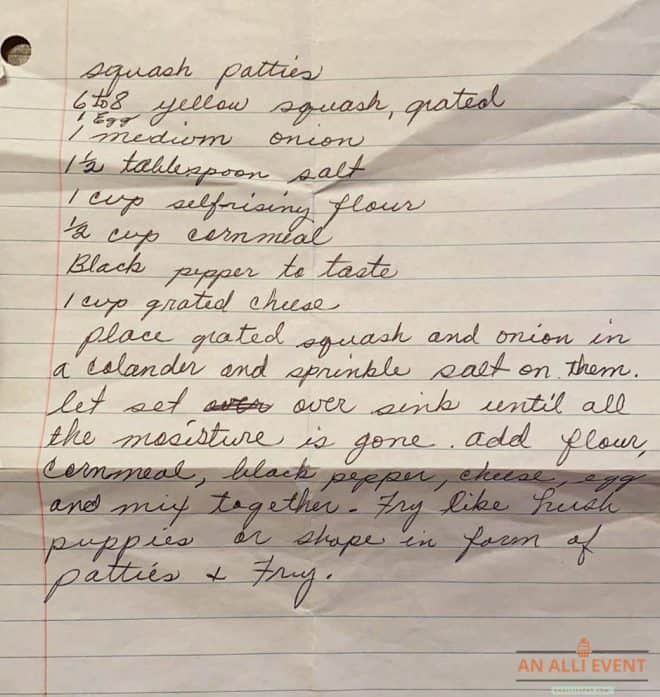 squash patties
6 to 8 yellow squash, grated
1 Egg
1 medium onion
1 ½ tablespoon salt
1 cup selfrising flour
½ cup cornmeal
Black pepper to taste
1 cup grated cheese
place grated squash and onion in
a colander and sprinkle salt on them.
let set over over sink until all
the mosisture is gone. add flour,
cornmeal, black pepper, cheese, egg
and mix together. Fry like hush
puppies or shape in form of
patties + Fry.
AN ALLI EVENT